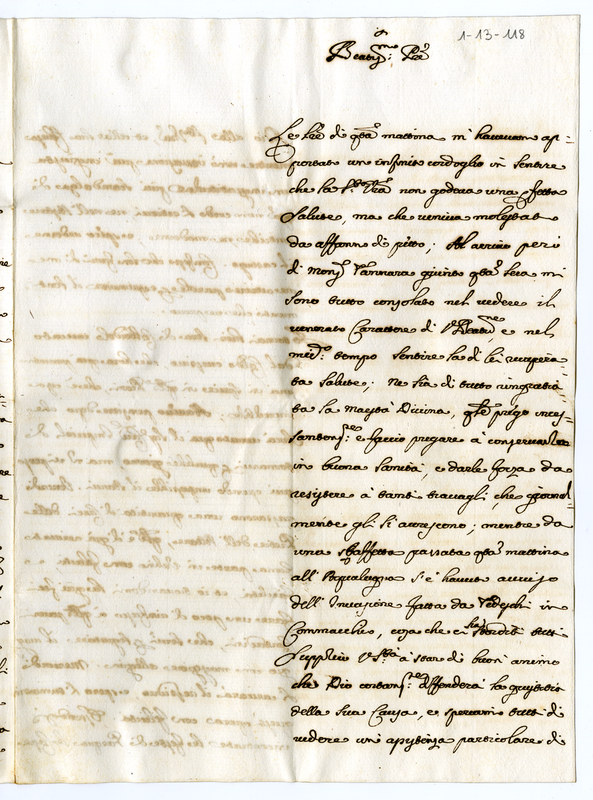 1-13-118
Beatiss.mo P.re
Le L.re di q.ta mattina m'havevano ap-
portato un infinito cordoglio in sentire
che la S.tà V.ra non godeva una perfetta
salute, ma che veniva molestata
da affanno di petto; Al arrivo però
di Mons. Vannara giunto q.ta sera mi
sono tutto consolato nel vedere il
venerato Carattere di V. Beatit.ne e nel
med.o tempo sentire la di lei recupera-
ta salute; Ne sia di tutto ringratia-
ta la Maestà Divina, q.le prego inces-
santem.te e faccio pregare à conservarla
in buona sanità, e darle forza da
resistere à tanti travagli, che giornal-
mente gli si accrescono; mentre da
una staffetta passata q.ta mattina
all' s'è havuto avviso
dell'Invasione fatta da Tedeschi in
Commacchio, cosa che ci hà storditi tutti
Supplico V. S.tà à star di buon animo
che Dio diffenderà la giustitia
della sua Causa, e speriamo tutti di
vedere un'assistenza particolare di